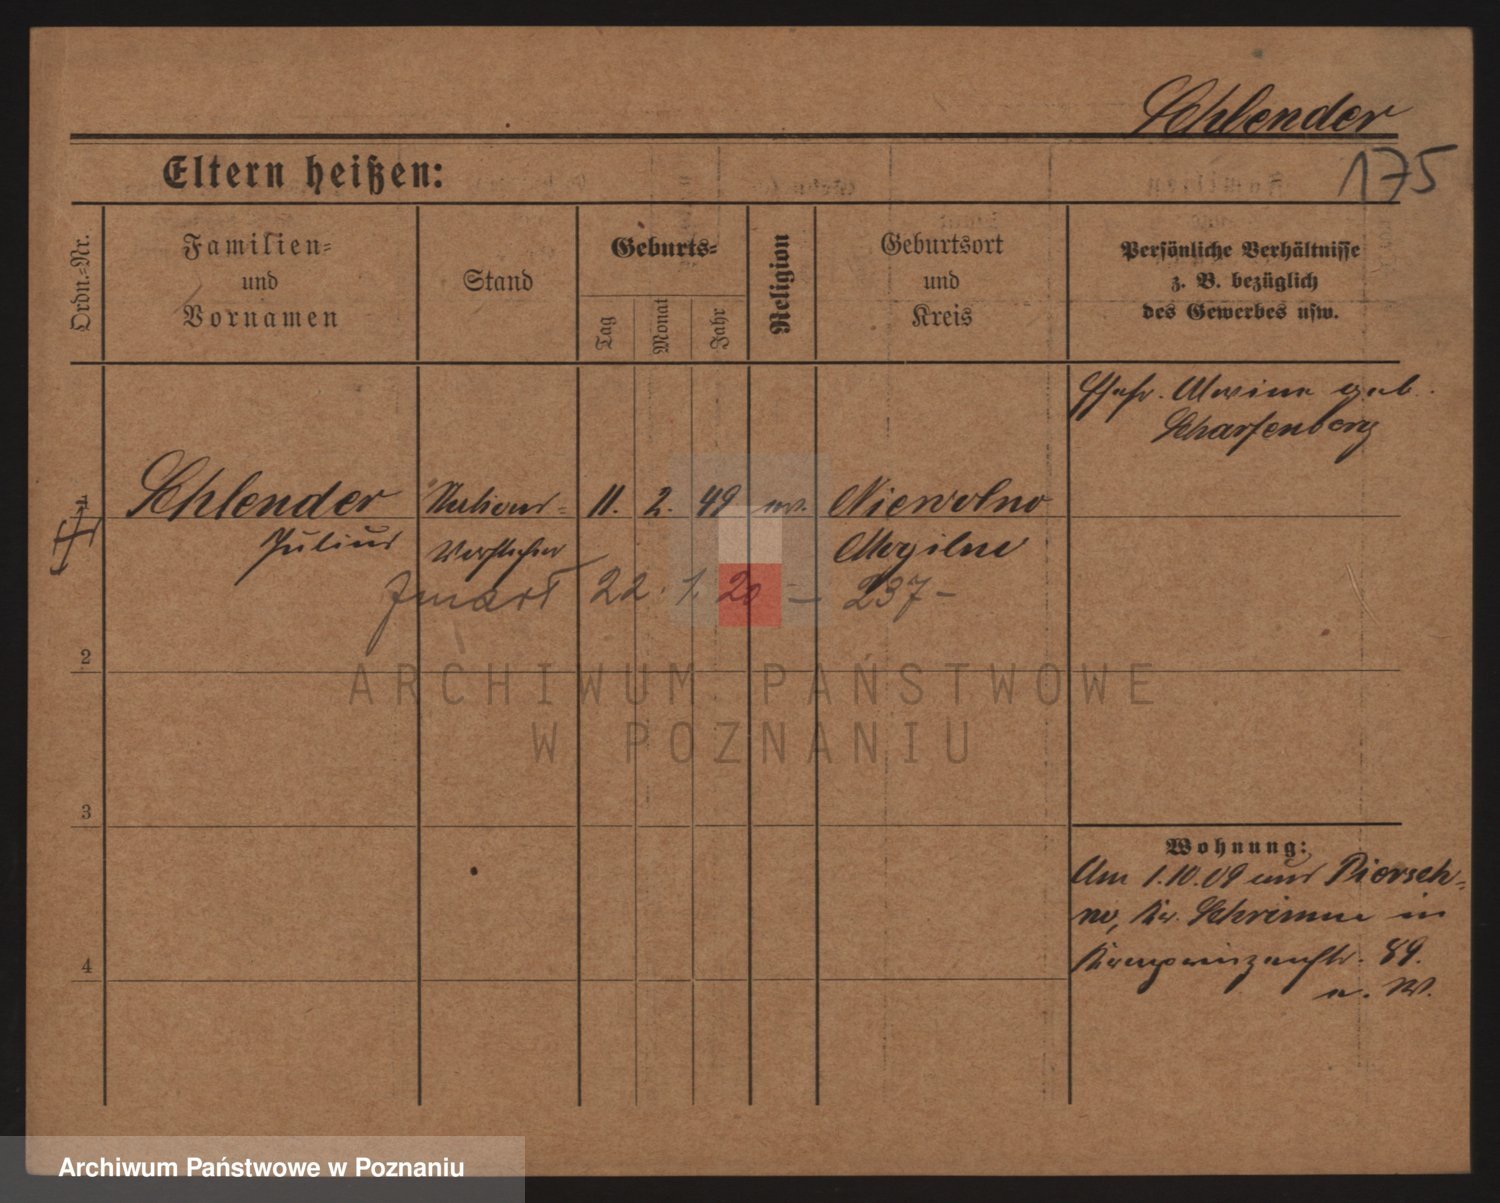 Schlender
175
Eltern heißen:
Ordn.=Nr.
Familien=
und
Vornamen
Stand
Geburts=
Tag
Monat
Jahr
Religion
Geburtsort
und
Kreis
Persönliche Verhältnisse
z. B. bezüglich
des Gewerbes usw.
Ehefr. Alwine geb.
Scharfenberg
1
Schlender
Stations=
11. 2. 49 ev.
Niewolno
Julius
Vorsteher
Mogilno
Zmarł 22. 1. 20 — 237 –
2
3
4
Wohnung:
Am 1.10.09 aus Piersch=
no, Kr. Schrimm in
Kronprinzenstr. 89.
n. W.
ARCHIWUM PAŃSTWOWE
W POZNANIU
Archiwum Państwowe w Poznaniu